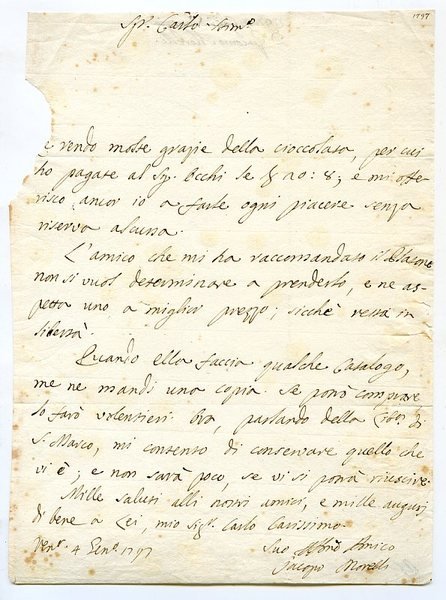 1797
Sigr. Carlo Stimo
Le rendo molte grazie della cioccolata, per cui
ho pagate al Sigr. Occhi le £ 20:8; e mi offe-
risco ancor io a farle ogni piacere senza
riserva alcuna.
L'amico che mi ha raccomandato il Platone
non si vuol determinare a prenderlo, e ne as-
petta uno a miglior prezzo; sicchè resta in
libertà.
Quando ella faccia qualche Catalogo,
me ne mandi una copia. Se potrò comprare
lo farò volentieri. Ora, parlando della di
S. Marco, mi contento di conservare quello che
vi è; e non sarà poco, se vi si potrà riuscire.
Mille saluti alli nostri amici, e mille auguri
di bene a Lei, mio Sigr. Carlo Carissimo.
Ven.a 4 Gen.o 1797
Suo Amico
Jacopo Morelli